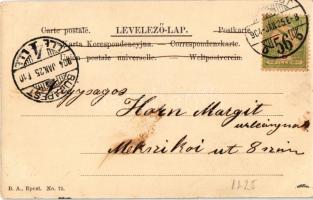 Carte postale. LEVELEZŐ-LAP. Postkarte.
Karta Korespondencyjna. — Correspondenzkarte.
postale universelle. — Weltpostverein.
BUDAPEST
904 JAN. 25
Nagyságos
Horn Margit
urleánynak
Mekszikói ut 8 szám
B. A., Bpest. No. 75.